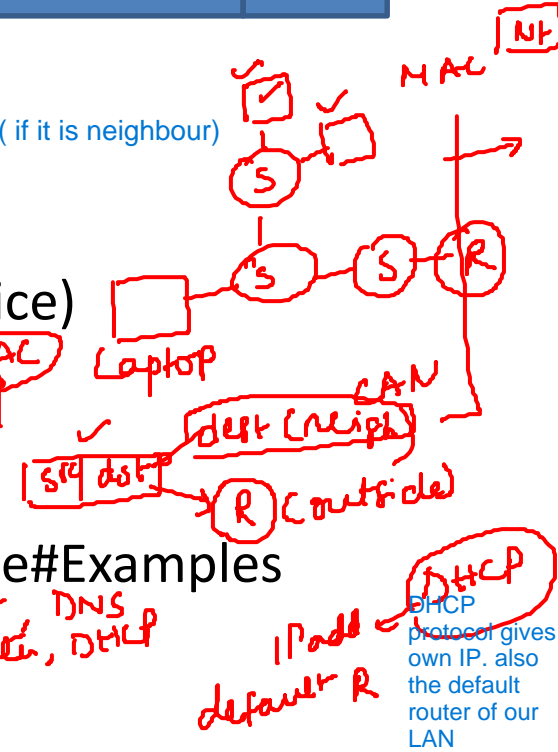 Nt
MAC
( if it is neighbour)
S
S
S
R
ice)
AC
Laptop
LAN
dest (neigh)
src dst
R (outside)
e#Examples
DNS
DHCP
, DHCP
IP add
default R
DHCP
protocol gives
own IP. also
the default
router of our
LAN